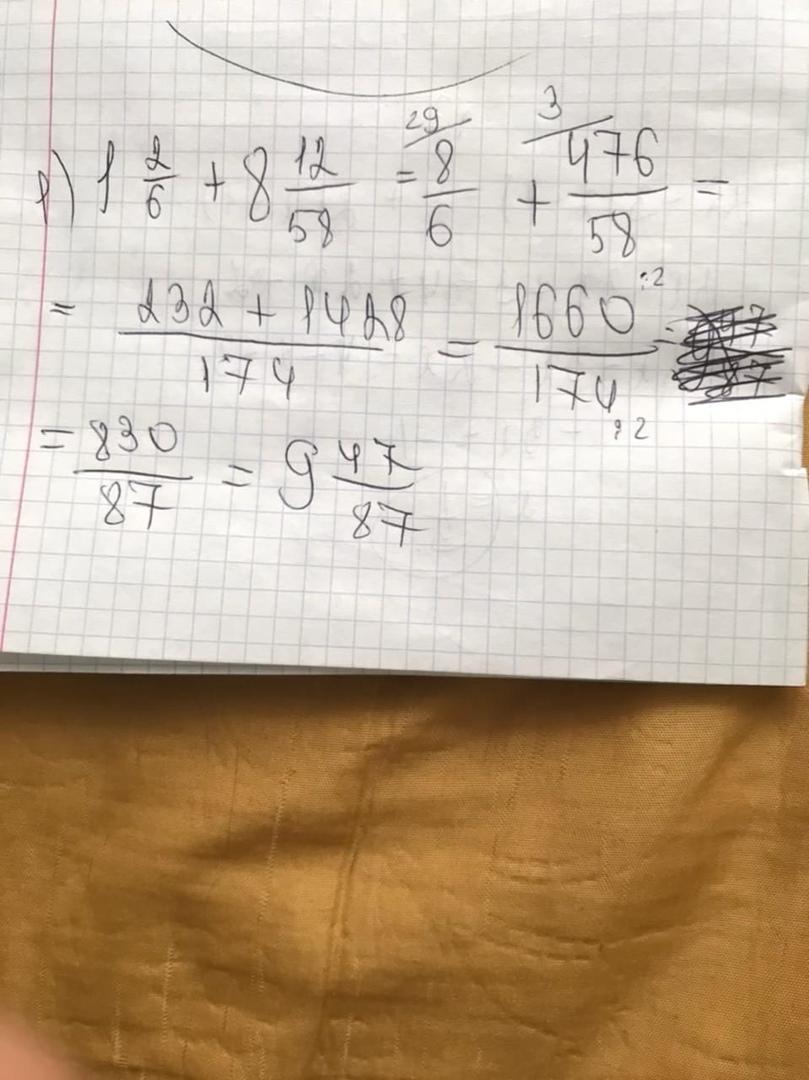 в) 1 2/6 + 8 12/58 = 29/ 8/6 + 3/ 476/58 =
= 232 + 1428/174 = 1660 :2/174 :2 =
= 830/87 = 9 47/87